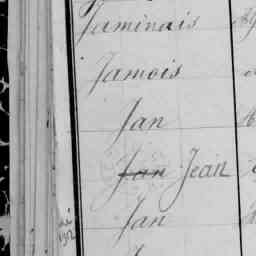 Jaminais
Jamois
Jan
Jan Jean
Jan